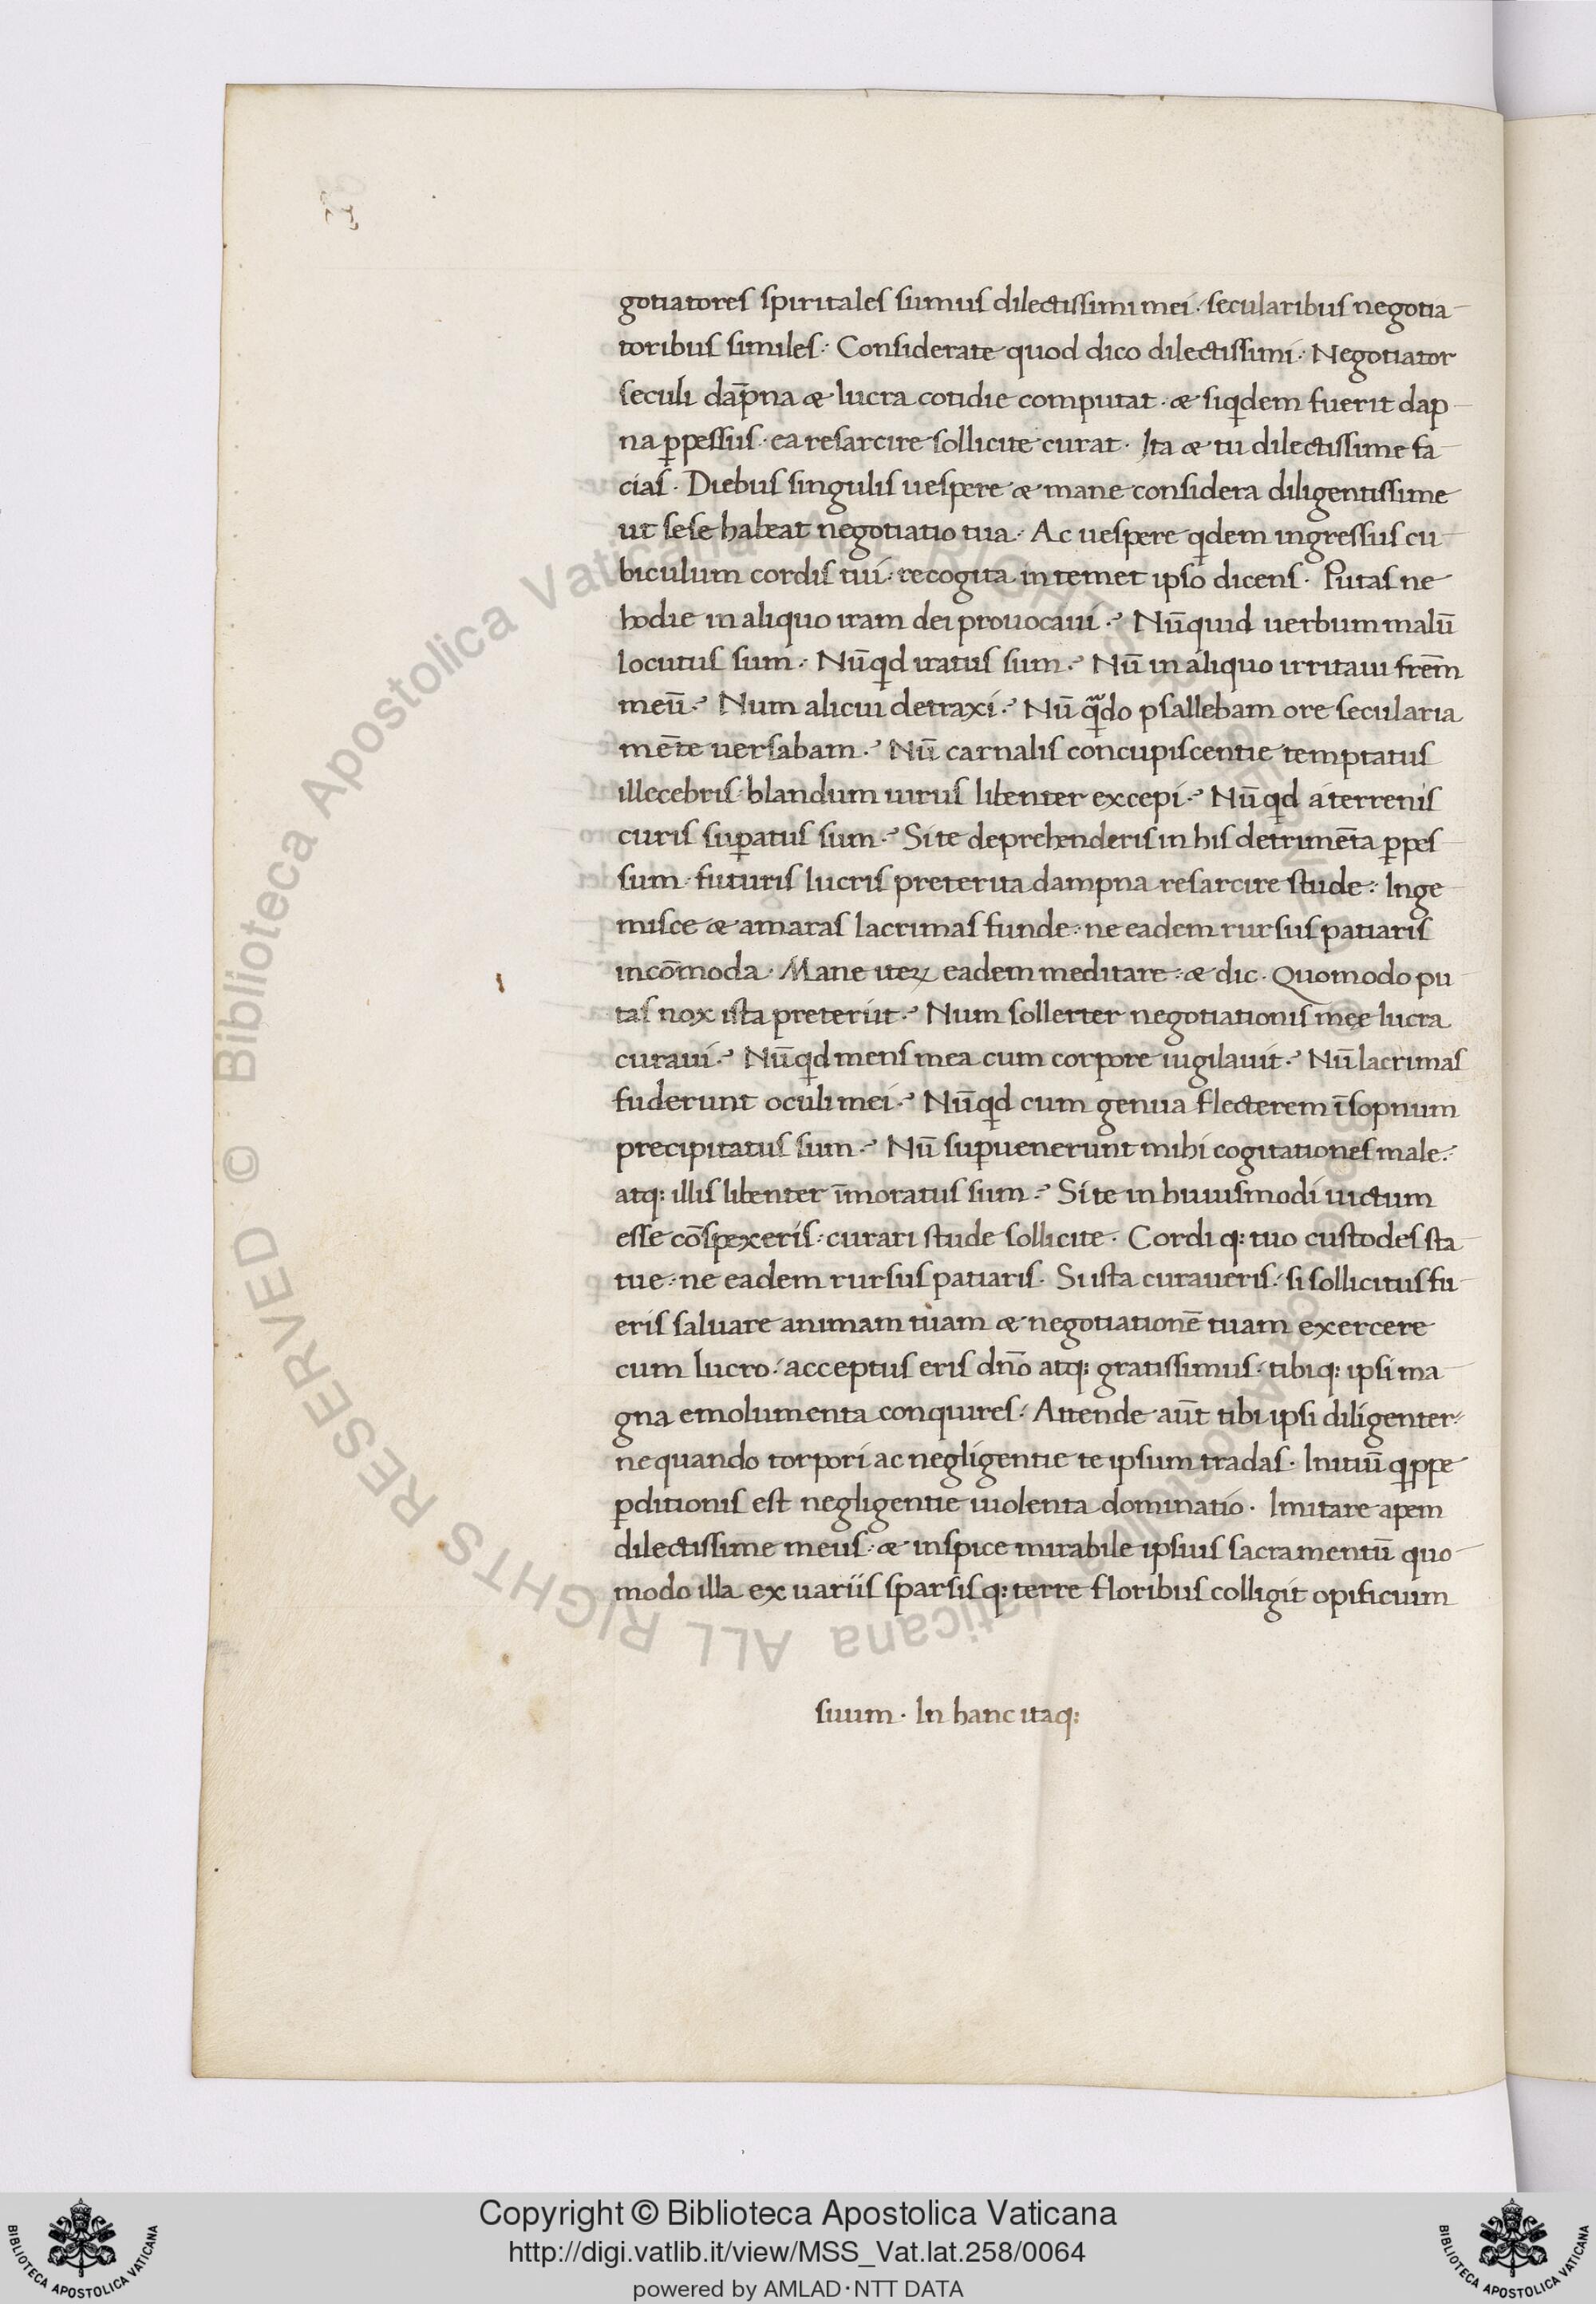 gotiatores spiritales sumus dilectissimi mei · secularibus negotia-
toribus similes : Considerate quod dico dilectissimi : Negotiator
seculi dap̄na & lucra cotidie computat · & siqͥdem fuerit dap-
na ꝑpessus · ea resarcire sollicite curat · Ita & tu dilectissime fa-
cias · Diebus singulis uespere & mane considera diligentissime
ut sese habeat negotiatio tua : Ac uespere qͥdem ingressus cu-
biculum cordis tui : recogita in temet ipso dicens · Putas ne
hodie in aliquo iram dei prouocaui ? Nūquid uerbum malū
locutus sum : Nūqͥd iratus sum ? Nū in aliquo irritaui frēm
meū ? Num alicui detraxi ? Nū qᷓdo psallebam ore secularia
mēte uersabam ? Nū carnalis concupiscentie temptatus
illecebris blandum uirus libenter excepi ? Nūqͥd a terrenis
curis suꝑatus sum ? Si te deprehenderis in his detrimēta ꝑpes-
sum · futuris lucris preterita dampna resarcire stude : Inge-
misce & amaras lacrimas funde : ne eadem rursus patiaris
incōmoda · Mane iteꝝ eadem meditare : & dic · Quomodo pu-
tas nox ista preteriit ? Num sollerter negotiationis meę lucra
curaui ? Nūqͥd mens mea cum corpore uigilauit ? Nū lacrimas
fuderunt oculi mei ? Nūqͥd cum genua flecterem ī sopnum
precipitatus sum ? Nū suꝑuenerunt mihi cogitationes male :
atq: illis libenter īmoratus sum ? Si te in huiusmodi uictum
esse cōspexeris : curari stude sollicite · Cordi q: tuo custodes sta-
tue : ne eadem rursus patiaris · Si ista curaueris : si sollicitus fu-
eris saluare animam tuam & negotiationē tuam exercere
cum lucro : acceptus eris dn̄o atq: gratissimus · tibiq: ipsi ma-
gna emolumenta conquires : Attende aūt tibi ipsi diligenter :
ne quando torpori ac negligentie te ipsum tradas · Initiū qͥppe
ꝑditionis est negligentie uiolenta dominatio · Imitare apem
dilectissime meus : & inspice mirabile ipsius sacramentū quo-
modo illa ex uariis sparsis q: terre floribus colligit opificium
suum · In hanc itaq:
Copyright © Biblioteca Apostolica Vaticana
http://digi.vatlib.it/view/MSS_Vat.lat.258/0064
powered by AMLAD·NTT DATA
BIBLIOTECA APOSTOLICA VATICANA
BIBLIOTECA APOSTOLICA VATICANA
© Biblioteca Apostolica Vaticana ALL RIGHTS RESERVED
© Biblioteca Apostolica Vaticana ALL RIGHTS RESERVED